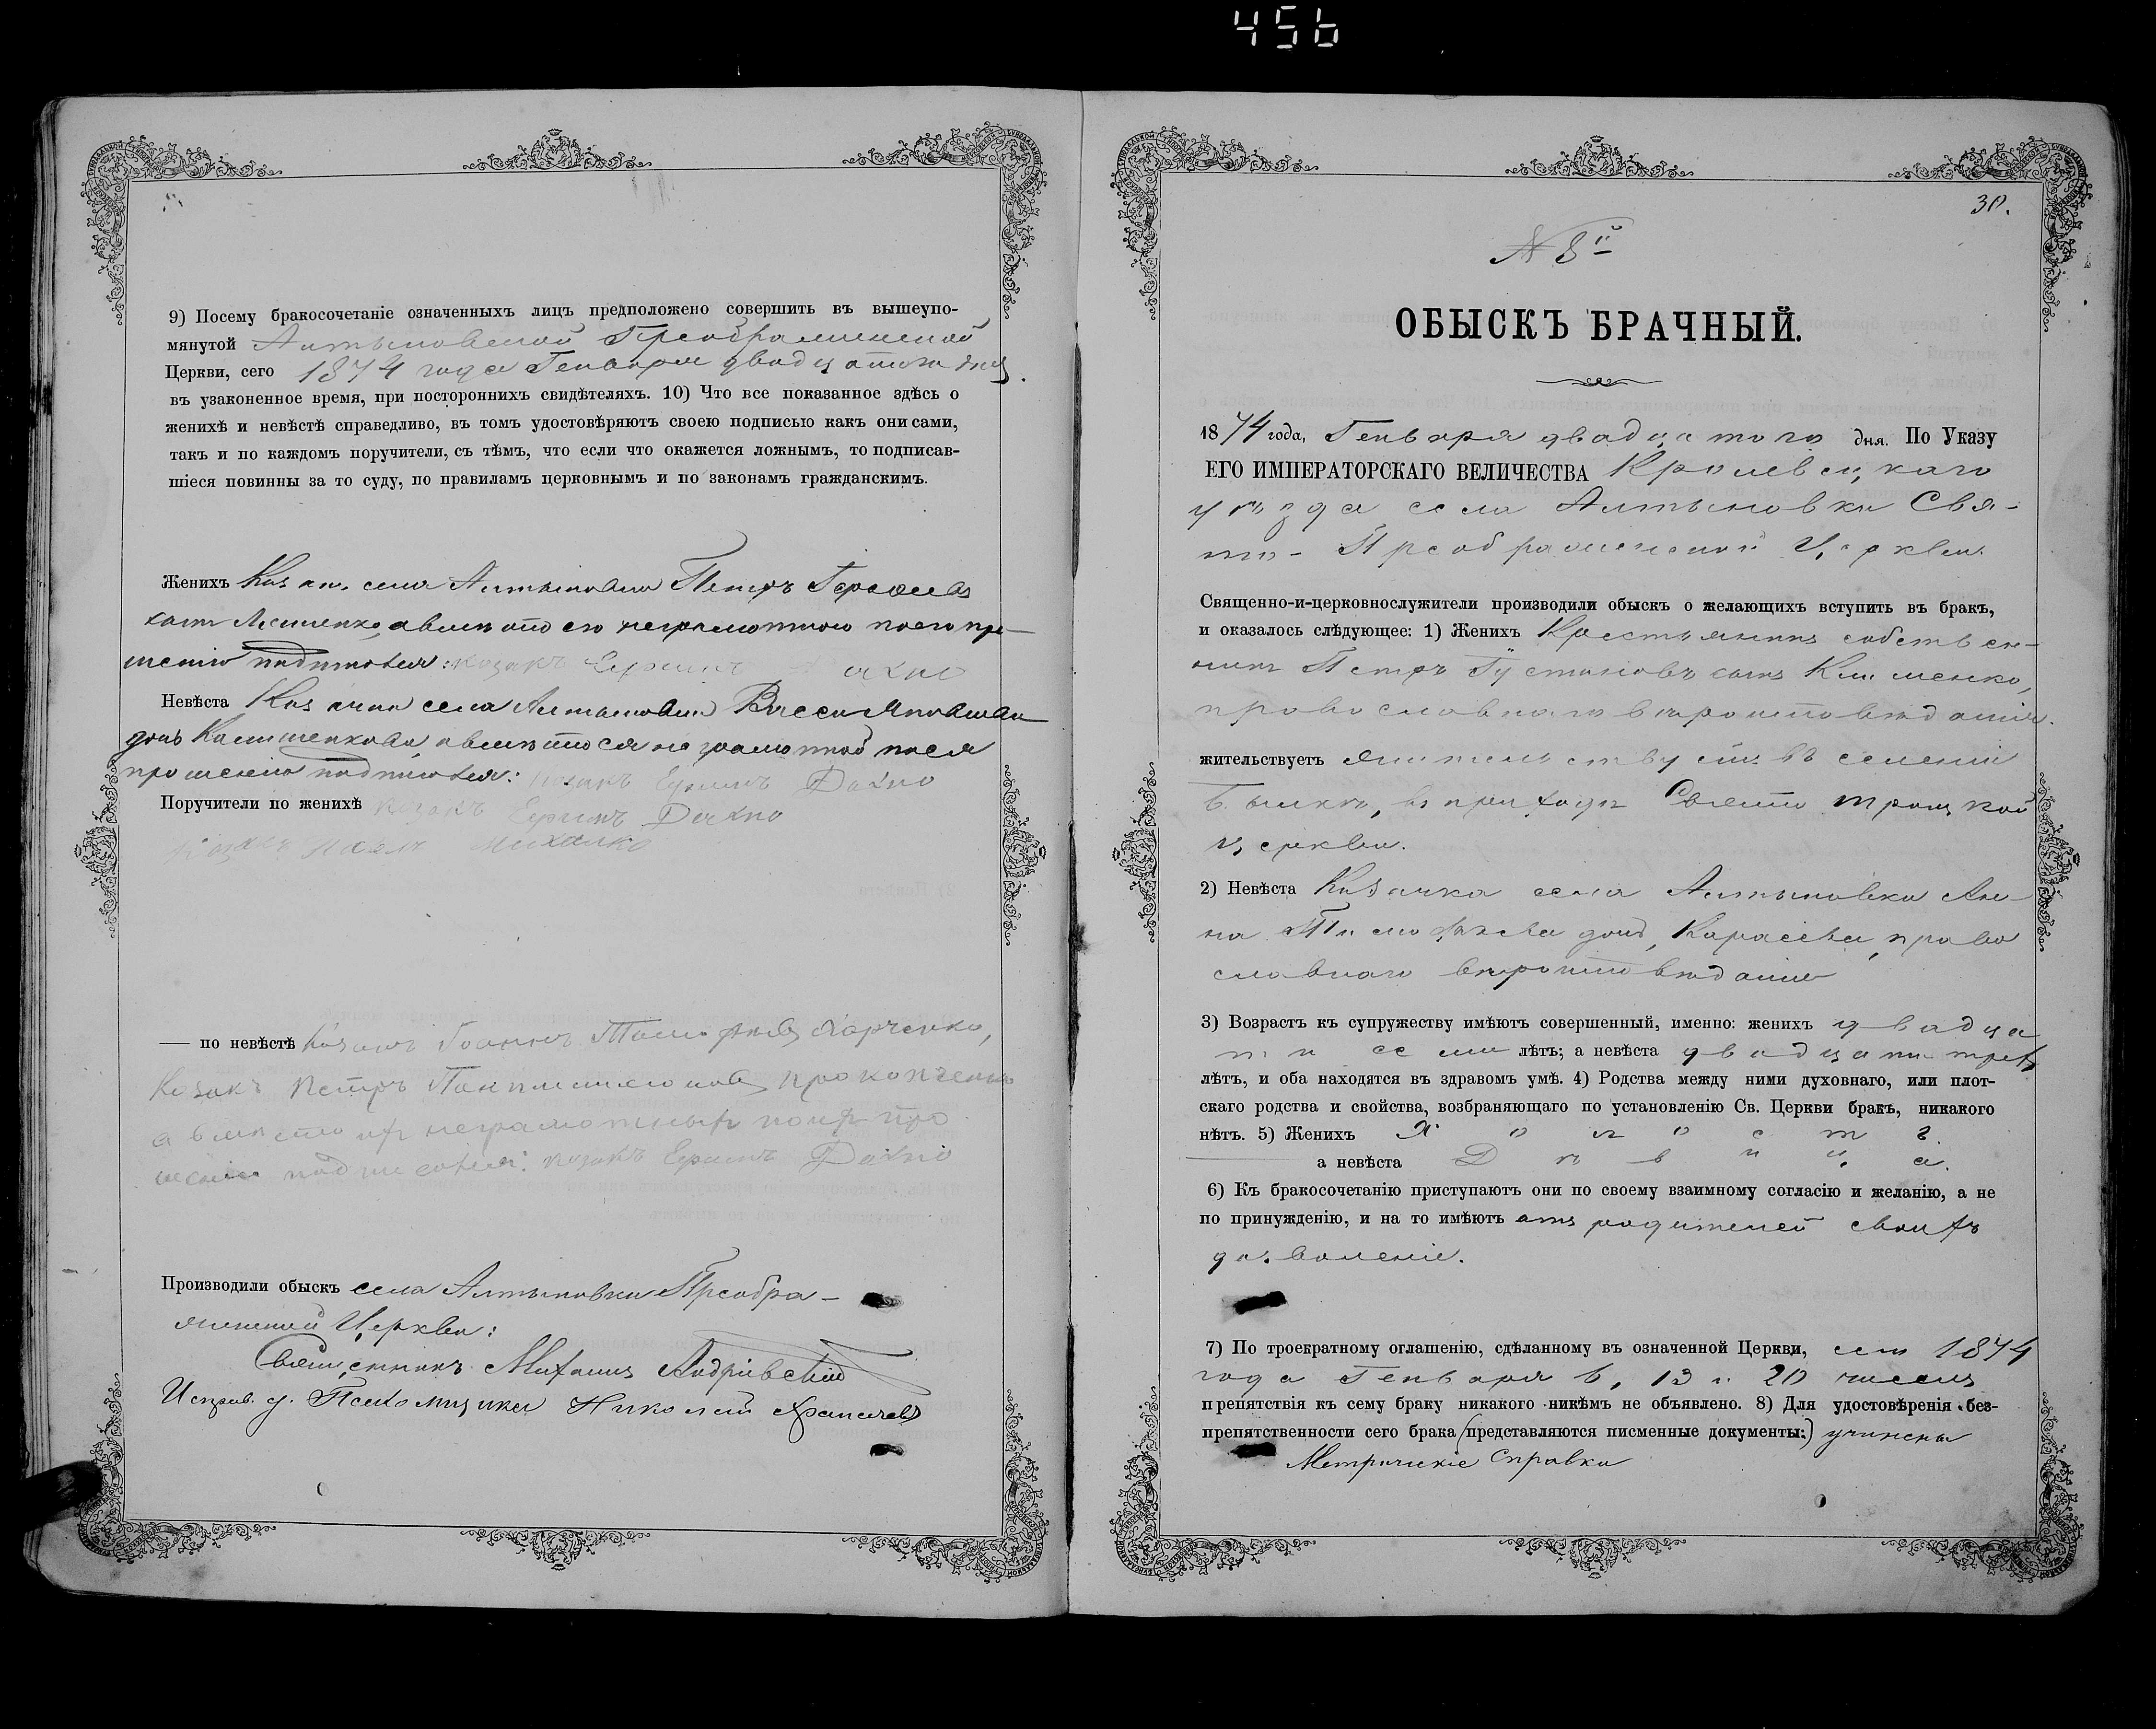 456
9) Посему бракосочетаніе означенныхъ лицъ предположено совершить въ вышеупо-
мянутой Алтыновской Преображенской
Церкви, сего 1874 года Генваря двадцатого дня.
въ узаконенное время, при постороннихъ свидѣтеляхъ. 10) Что все показанное здѣсь о
женихѣ и невѣстѣ справедливо, въ томъ удостовѣряютъ своею подписью какъ они сами,
такъ и по каждомъ поручители, съ тѣмъ, что если что окажется ложнымъ, то подписав-
шіеся повинны за то суду, по правиламъ церковнымъ и по законамъ гражданскимъ.
Женихъ Козакъ села Алтыновки Петръ
сынъ а вмѣсто его неграмотного по его про-
шенію подписался: козакъ Ефимъ
Невѣста Козачка села Алтыновки Васса
дочь а вмѣсто ея неграмотной по ея
прошенію подписался: козакъ Ефимъ Дахно
Поручители по женихѣ козакъ Ефимъ Дахно
козакъ Михалко
— по невѣстѣ Козакъ Іоаннъ Харченко,
Козакъ Петръ Прокопченко
а вмѣсто ихъ неграмотныхъ по ихъ про
шенію подписался: козакъ Ефимъ Дахно
Производили обыскъ села Алтыновки Преобра-
женской Церкви:
Священникъ Михаилъ Андріевскій
Исправ. д. Псаломщика Николай
30.
N 8й
ОБЫСКЪ БРАЧНЫЙ.
1874 года, Генваря двадцатого дня. По Указу
ЕГО ИМПЕРАТОРСКАГО ВЕЛИЧЕСТВА Кролевецкаго
уѣзда села Алтыновки Свя-
то-Преображенской Церкви.
Священно-и-церковнослужители производили обыскъ о желающихъ вступить въ бракъ,
и оказалось слѣдующее: 1) Женихъ Крестьянинъ собствен-
никъ Петръ Іустиновъ сынъ Клименко,
православнаго вѣроисповѣданія.
жительствуетъ жительствуетъ въ селеніи
въ приходѣ Свято Троицкой
церкви.
2) Невѣста Козачка села Алтыновки Ан-
на Тимофѣева дочь, Карасева, право
славнаго вѣроисповѣданія
3) Возрастъ къ супружеству имѣютъ совершенный, именно: женихъ двадца
ти семи лѣтъ; а невѣста двадцати трехъ
лѣтъ, и оба находятся въ здравомъ умѣ. 4) Родства между ними духовнаго, или плот-
скаго родства и свойства, возбраняющаго по установленію Св. Церкви бракъ, никакого
нѣтъ. 5) Женихъ Холостъ.
а невѣста Дѣвица.
6) Къ бракосочетанію приступаютъ они по своему взаимному согласію и желанію, а не
по принужденію, и на то имѣютъ отъ родителей своихъ
дозволеніе.
7) По троекратному оглашенію, сдѣланному въ означенной Церкви, сего 1874
года Генваря 6, 13 и 20 чиселъ
препятствія къ сему браку никакого никѣмъ не объявлено. 8) Для удостовѣренія без-
препятственности сего брака (представляются писменные документы:) учинены
Метрическіе Справки